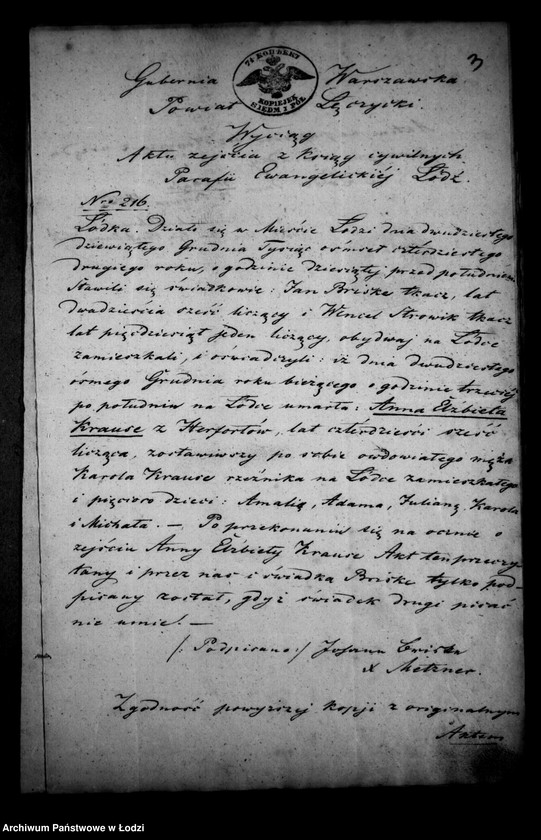 3
7½ КОПѢЕКЪ
KOPIEJEK
SIEDM I PÓŁ
Gubernia Warszawska
Powiat Łęczycki.
Wyciąg
Aktu zejścia z ksiąg cywilnych
Parafii Ewangelickiéj Łódź.
Nro 216.
Łódka. Działo się w Mieście Łodzi dnia dwudziestego
dziewiątego Grudnia Tysiąc ośmset czterdziestego
drugiego roku, o godzinie dziesiątej przed południem
Stawili się świadkowie: Jan Briske tkacz, lat
dwadzieścia sześć liczący i Wencel Strowik tkacz
lat pięćdziesiąt jeden liczący, obydwaj na Łódce
zamieszkali, i oświadczyli: iż dnia dwudziestego
ósmego Grudnia roku bieżącego o godzinie trzeciéj
po południu na Łódce umarła: Anna Elżbieta
Krause z Herfortów, lat czterdzieści sześć
licząca, zostawiwszy po sobie owdowiałego męża
Karola Krause rzeźnika na Łódce zamieszkałego
i pięcioro dzieci: Amalię, Adama, Juliannę, Karola
i Michała. — Po przekonaniu się na ocznie o
zejściu Anny Elżbiety Krause Akt ten przeczy-
tany i przez nas i świadka Briske tylko pod-
pisany został, gdyż świadek drugi pisać
nie umie. —
/: Podpisano :/ Johann Briske
X Metzner.
Zgodność powyższej kopji z oryginalnym
Aktem
Archiwum Państwowe w Łodzi